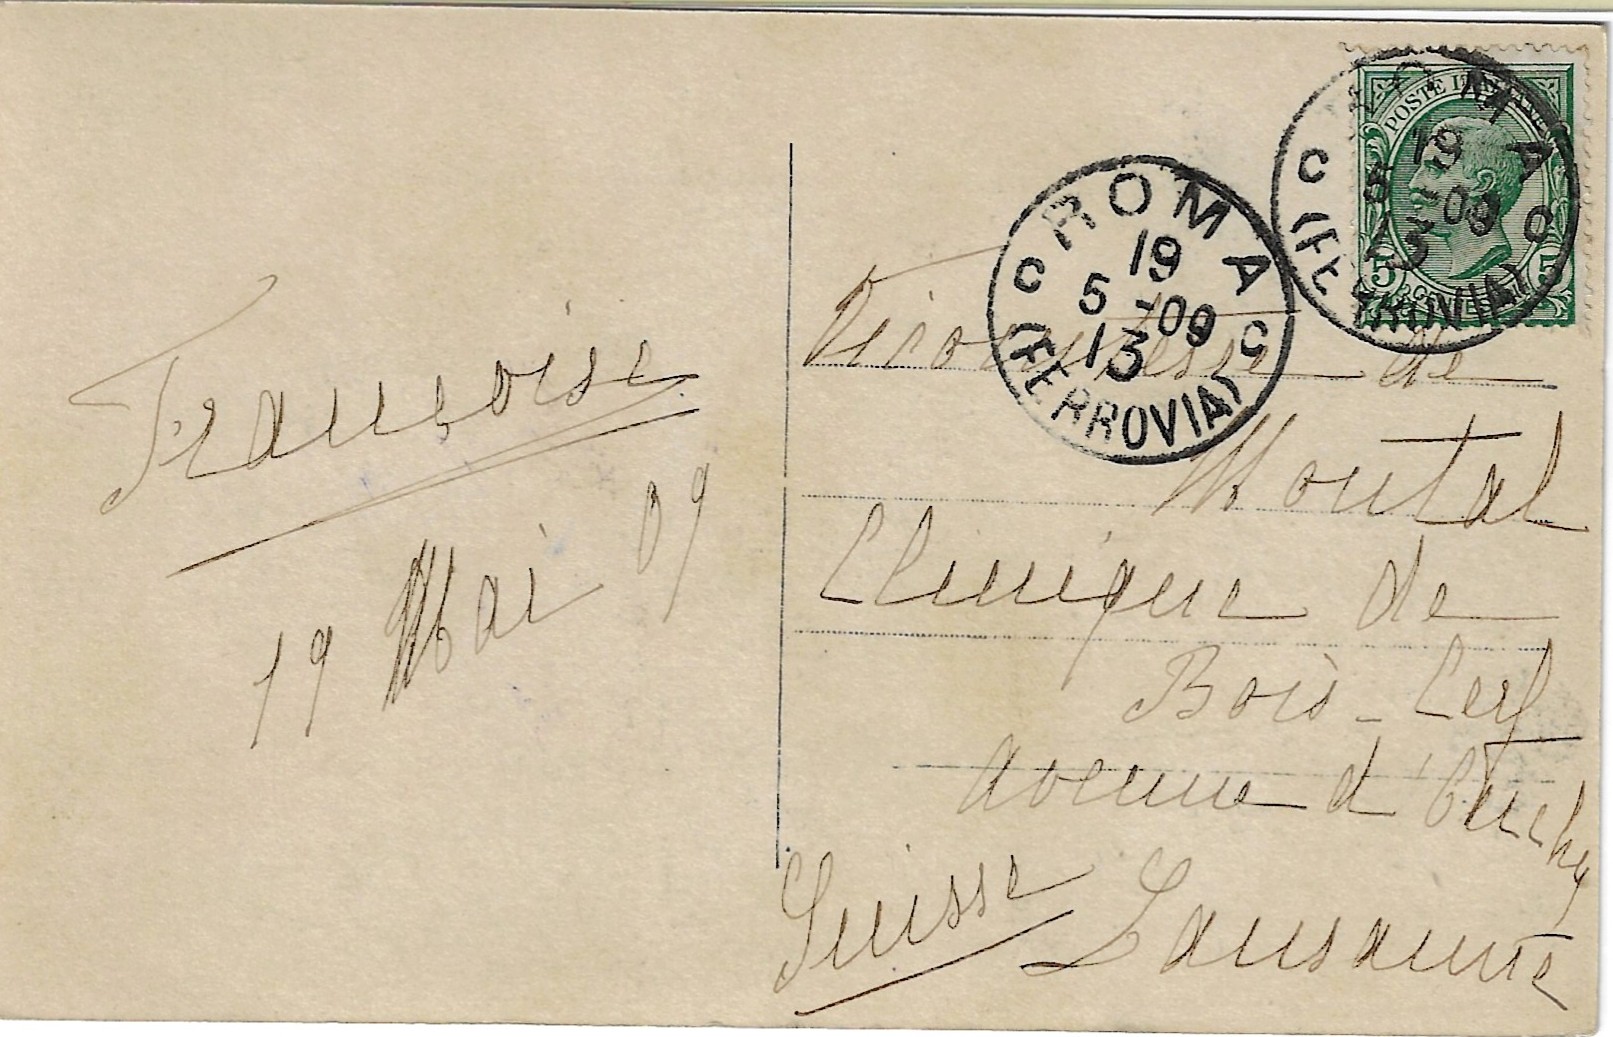 Françoise
19 Mai 09
POSTE ITALIANE
5 5
ROMA
19
5 -09
13
C C
(FERROVIA)
ROMA
19
5 -09
13
C C
(FERROVIA)
Vicomtesse de
Montal
Clinique de
Bois-Cerf
avenue d'Ouchy
Lausanne
Suisse